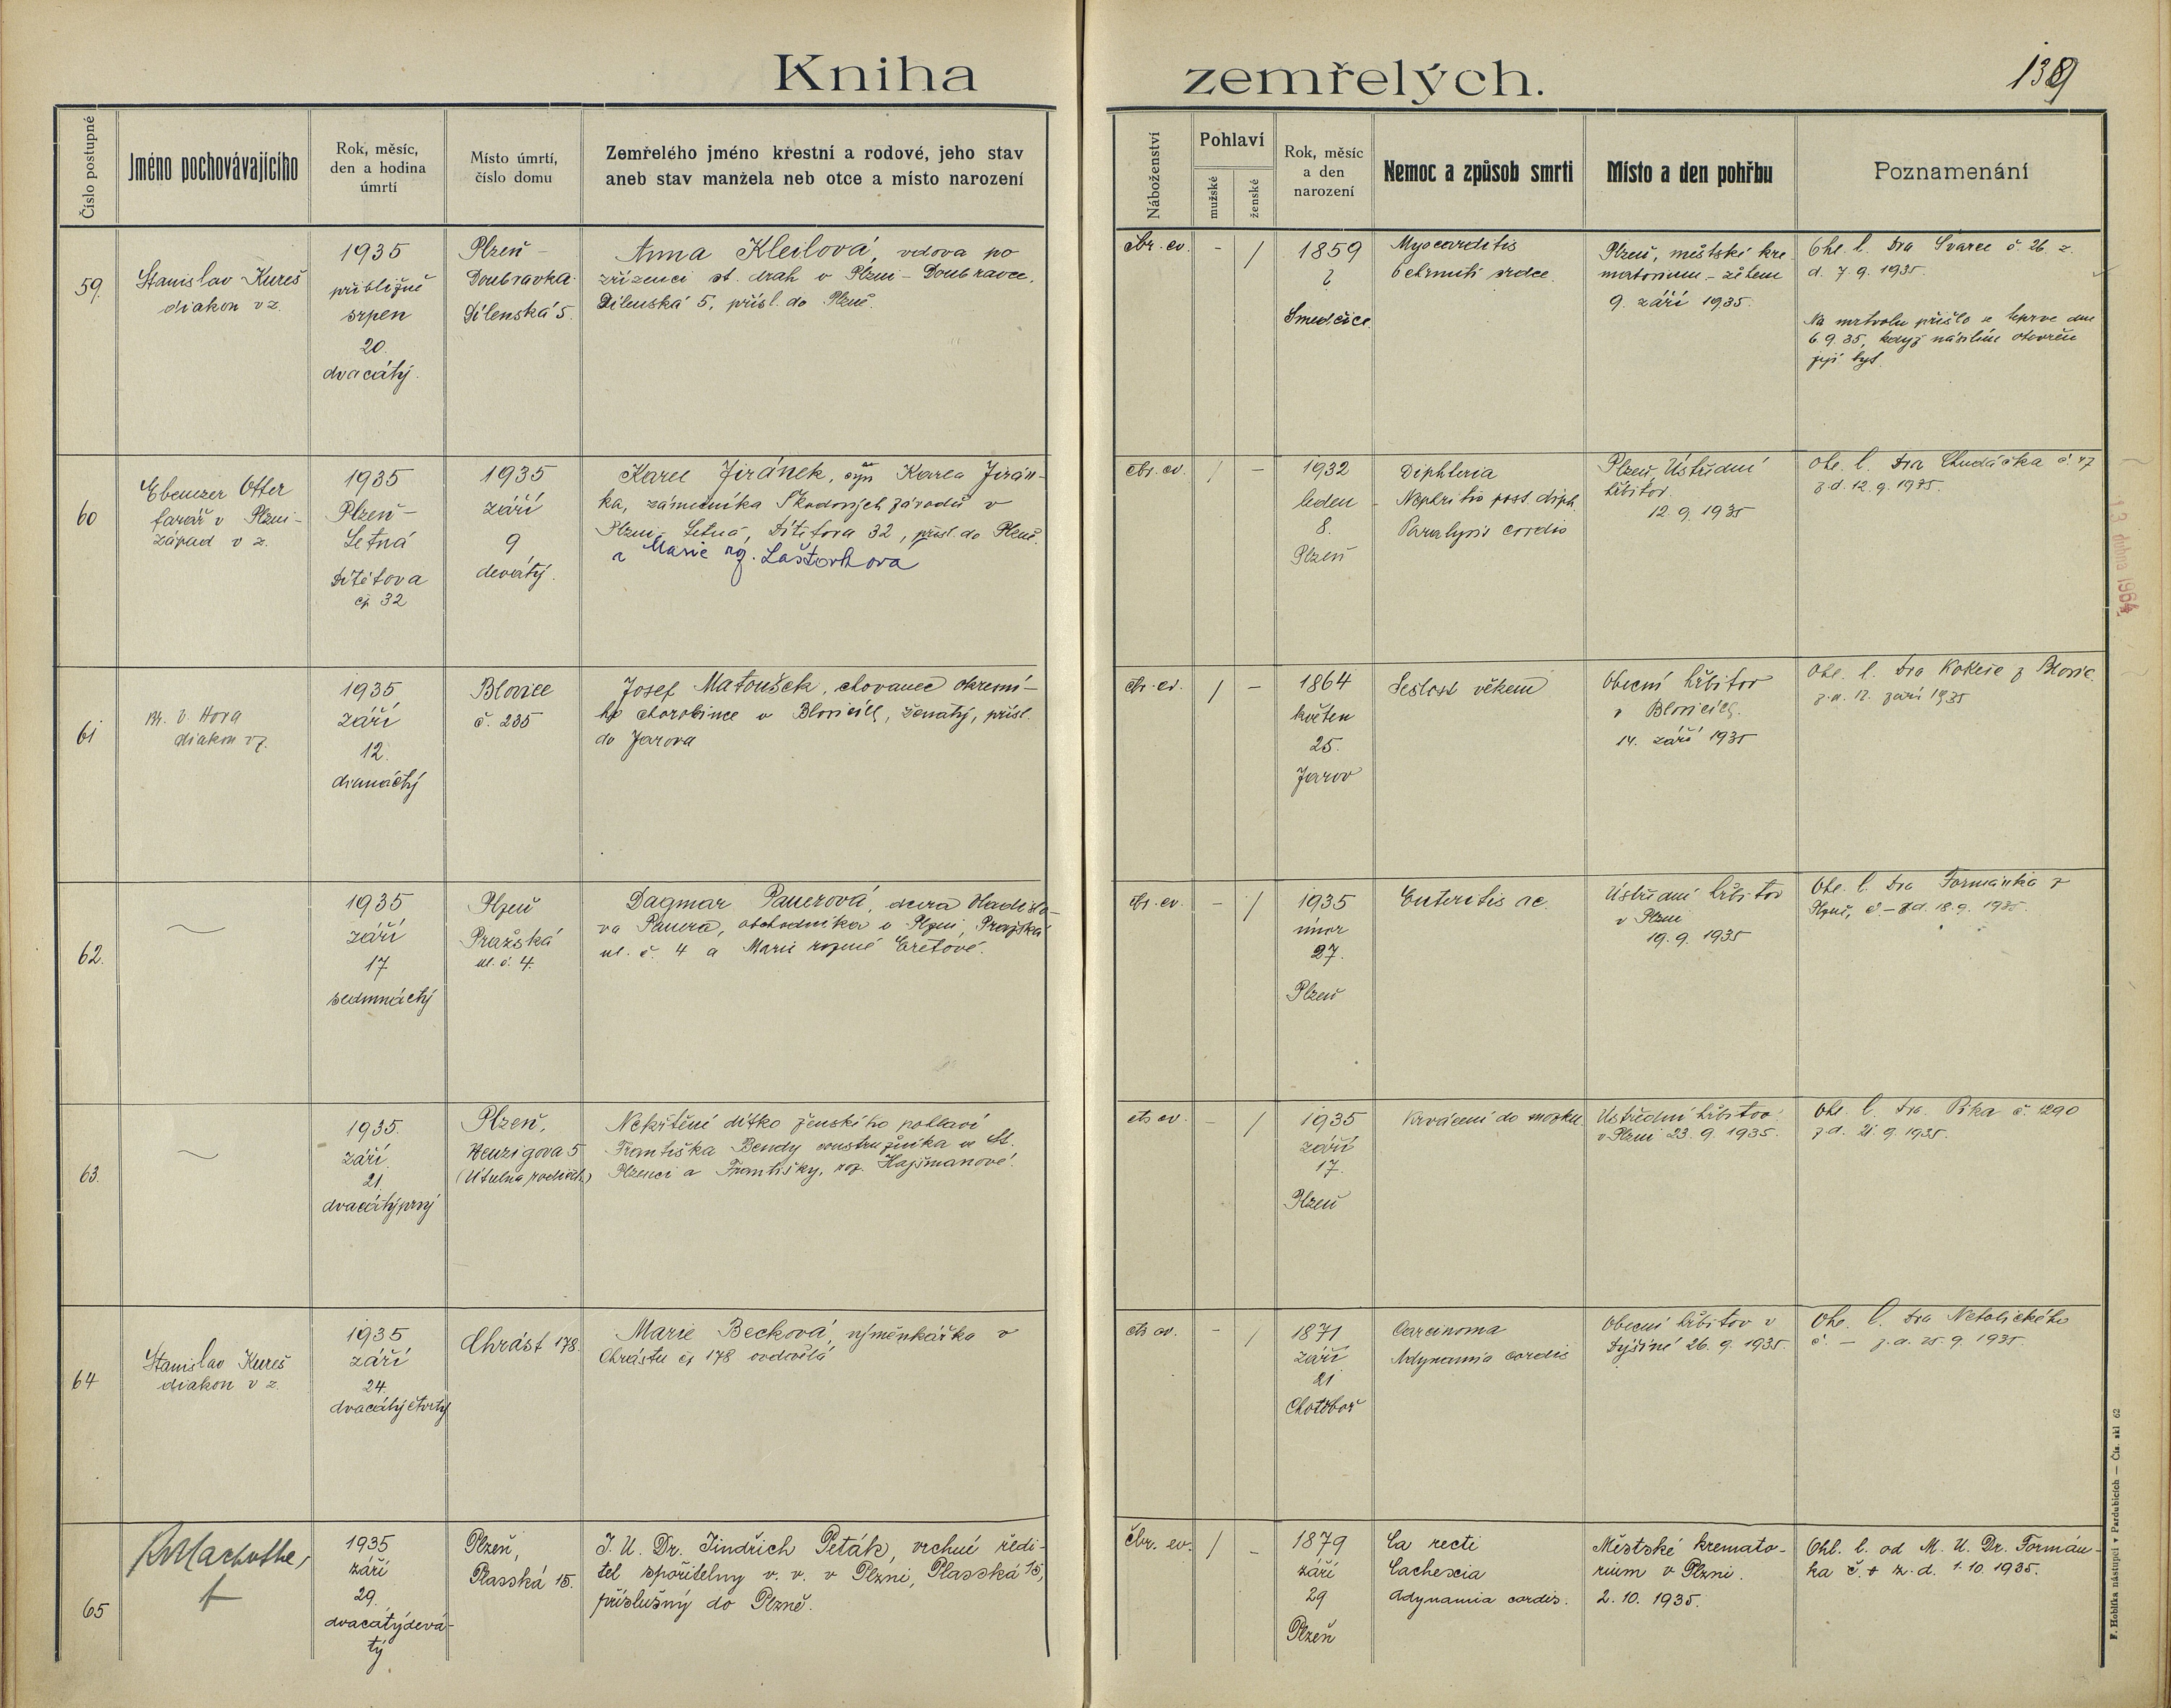 Kniha zemřelých.
139
Číslo postupné
Jméno pochovávajícího
Rok, měsíc,
den a hodina
úmrtí
Místo úmrtí,
číslo domu
Zemřelého jméno křestní a rodové, jeho stav
aneb stav manžela neb otce a místo narození
Náboženství
Pohlaví
mužské
ženské
Rok, měsíc
a den
narození
Nemoc a způsob smrti
Místo a den pohřbu
Poznamenání
59.
Stanislav Kureš
diakon v z.
1935
přibližně
srpen
20.
dvacátý.
Plzeň -
Doubravka
Dílenská 5.
Anna Kleilová, vdova po
zřízenci st. drah v Plzni - Doubravce,
Dílenská 5, přísl. do Plzně.
čbr. ev.
-
/
1859
?
Smedčice
Myocarditis
Ochrnutí srdce
Plzeň, městské kre-
matorium - žehem
9. září 1935.
Ohl. l. Dra Švarce č. 26. z.
d. 7. 9. 1935.
Na mrtvolu přišlo se teprve dne
6. 9. 35, když násilím otevřen
její byt.
60
Ebenezer Otter
farář v Plzni-
západ v z.
1935
Plzeň -
Letná
Dítětova
čp 32
1935
září
9
devátý.
Karel Jiránek, syn Karla Jirán-
ka, zámečníka Škodových závodů v
Plzni, Letná, Dítětova 32, přísl. do Plzně.
a Marie roz. Laštovkova
čbr. ev.
/
-
1932
leden
8.
Plzeň
Diphteria
Nephritis post. diph.
Paralysis cordis
Plzeň, Ústřední
hřbitov.
12. 9. 1935
Ohl. l. Dra Chudáčka č. 47
z d. 12. 9. 1935.
61
M. v. Hora
diakon v z.
1935
září
12.
dvanáctý
Blovice
č. 235
Josef Matoušek, chovanec okresní-
ho chorobince v Blovicích, ženatý, přísl.
do Jarova
čbr. ev.
/
-
1864
květen
25.
Jarov
Sešlost věkem
Obecní hřbitov
v Blovicích.
14. září 1935
Ohl. l. Dra Kokeše z Blovic
z d. 12. září 1935
62.
1935
září
17
sedmnáctý
Plzeň
Pražská
ul. č. 4.
Dagmar Pauerová, dcera Vladisla-
va Pauera, obchodníka v Plzni, Pražská
ul. č. 4 a Marie rozené
čbr. ev.
-
/
1935
únor
27.
Plzeň
Enteritis ac.
Ústřední hřbitov
v Plzni
19. 9. 1935
Ohl. l. Dra Formánka z
Plzně, č. - z d. 18. 9. 1935.
63.
1935.
září
21.
dvacátýprvý
Plzeň,
Heuzigova 5
Nekřtěné dítko ženského pohlaví
Františka Bendy v St.
Plzenci a Františky, roz. Hajšmanové.
čbr ev.
-
/
1935
září
17.
Plzeň
Krvácení do mozku
Ústřední hřbitov
v Plzni 23. 9. 1935.
Ohl. l. Dra. Pika č. 1290
z d. 21. 9. 1935.
64
Stanislav Kureš
diakon v z.
1935
září
24.
dvacátýčtvrtý
Chrást 178.
Marie Becková, výměnkářka v
Chrástu čp 178 ovdovělá
čbr ev.
-
/
1871
září
21
Chotěboř
Carcinoma
Adynamia cordis
Obecní hřbitov v
Dýšině 26. 9. 1935.
Ohl. l. Dra Netolického
č. - z. d. 25. 9. 1935.
65
1935
září
29.
dvacátýdevá-
tý
Plzeň,
Plasská 15.
J. U. Dr. Jindřich Peták, vrchní ředi-
tel spořitelny v. v. v Plzni, Plasská 15,
příslušný do Plzně.
čbr. ev.
/
-
1879
září
29
Plzeň
Ca recti
Cachexia
Adynamia cordis.
Městské kremato-
rium v Plzni.
2. 10. 1935.
Ohl. l. od M. U. Dr. Formán-
ka č. + z. d. 1. 10. 1935.
13 dubna 1964
F. Hoblíka nástupci v Pardubicích — Čís. skl 62